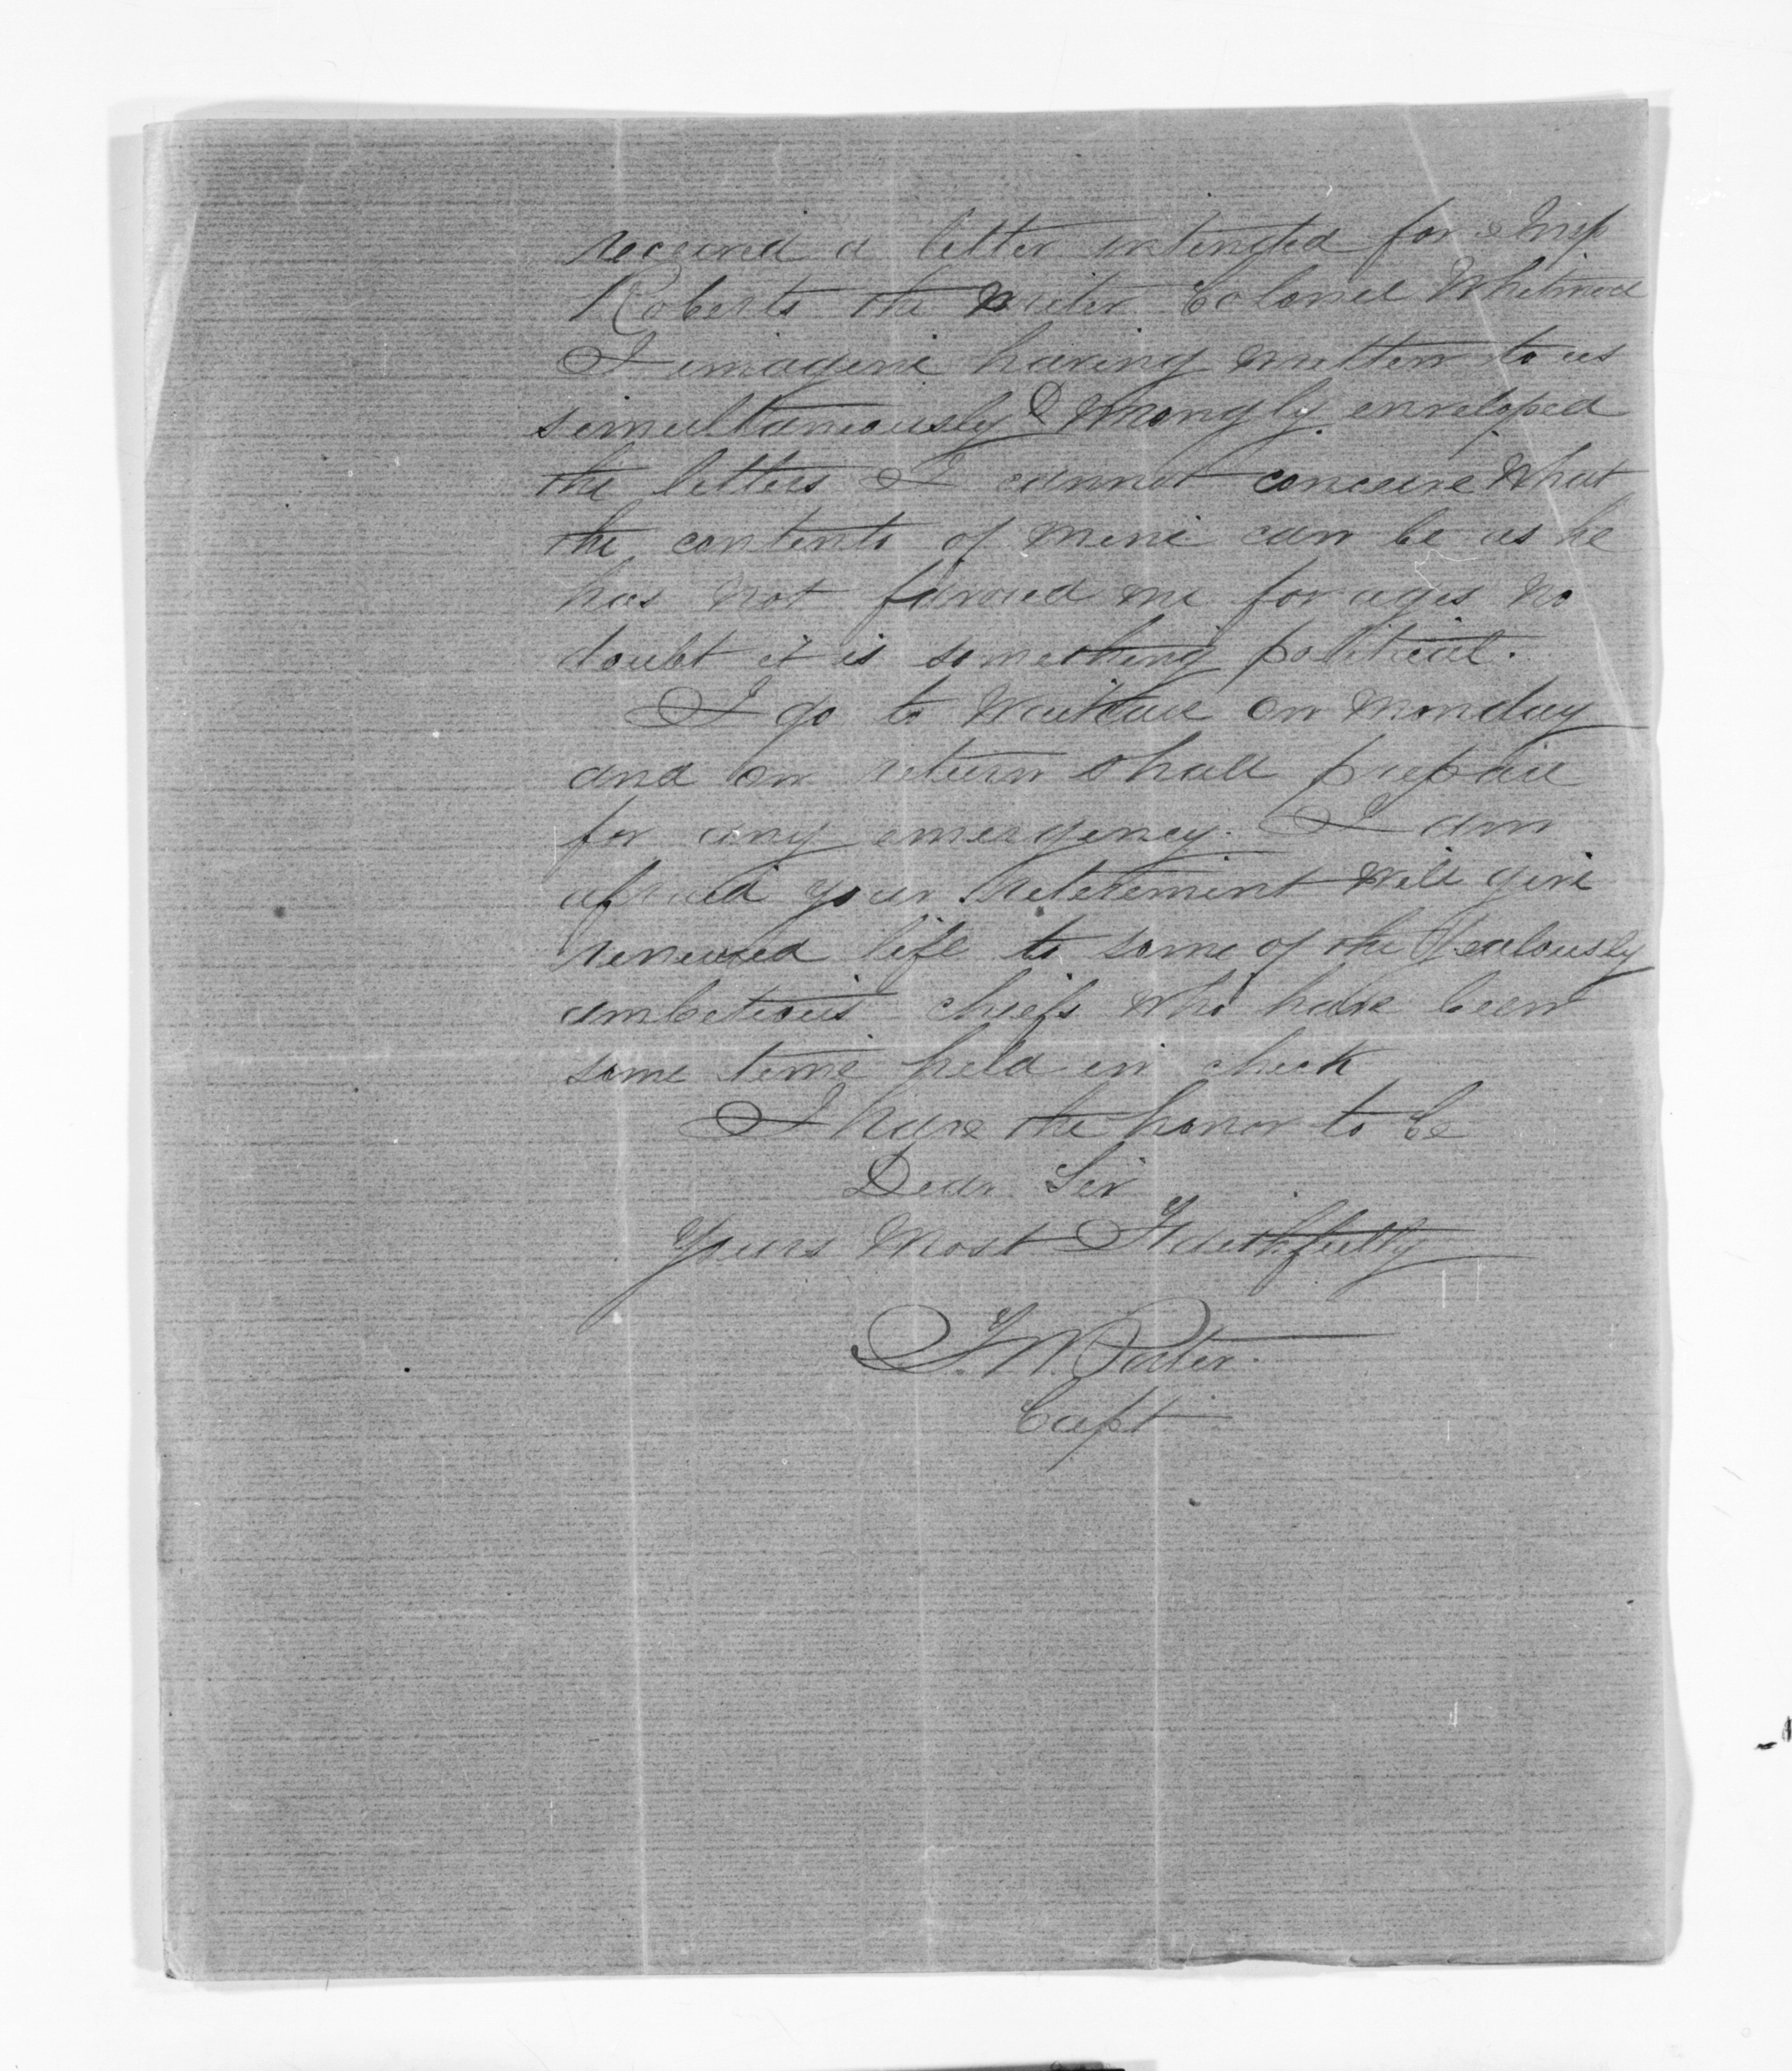 received a letter intended for Insp
Roberts the writer Colonel Whitmore
I imagine having written to us
simultaneously & wrongly enveloped
the letters I cannot conceive what
the contents of mine can be as he
has not favored me for ages no
doubt it is something political.
I go to on Monday
and on return shall prepare
for any emergency. I am
afraid your retirement will give
renewed life to some of the Jealously
ambitious chiefs who have been
some time held in check
I have the honor to be
Dear Sir
Yours Most Faithfully
Porter
Capt